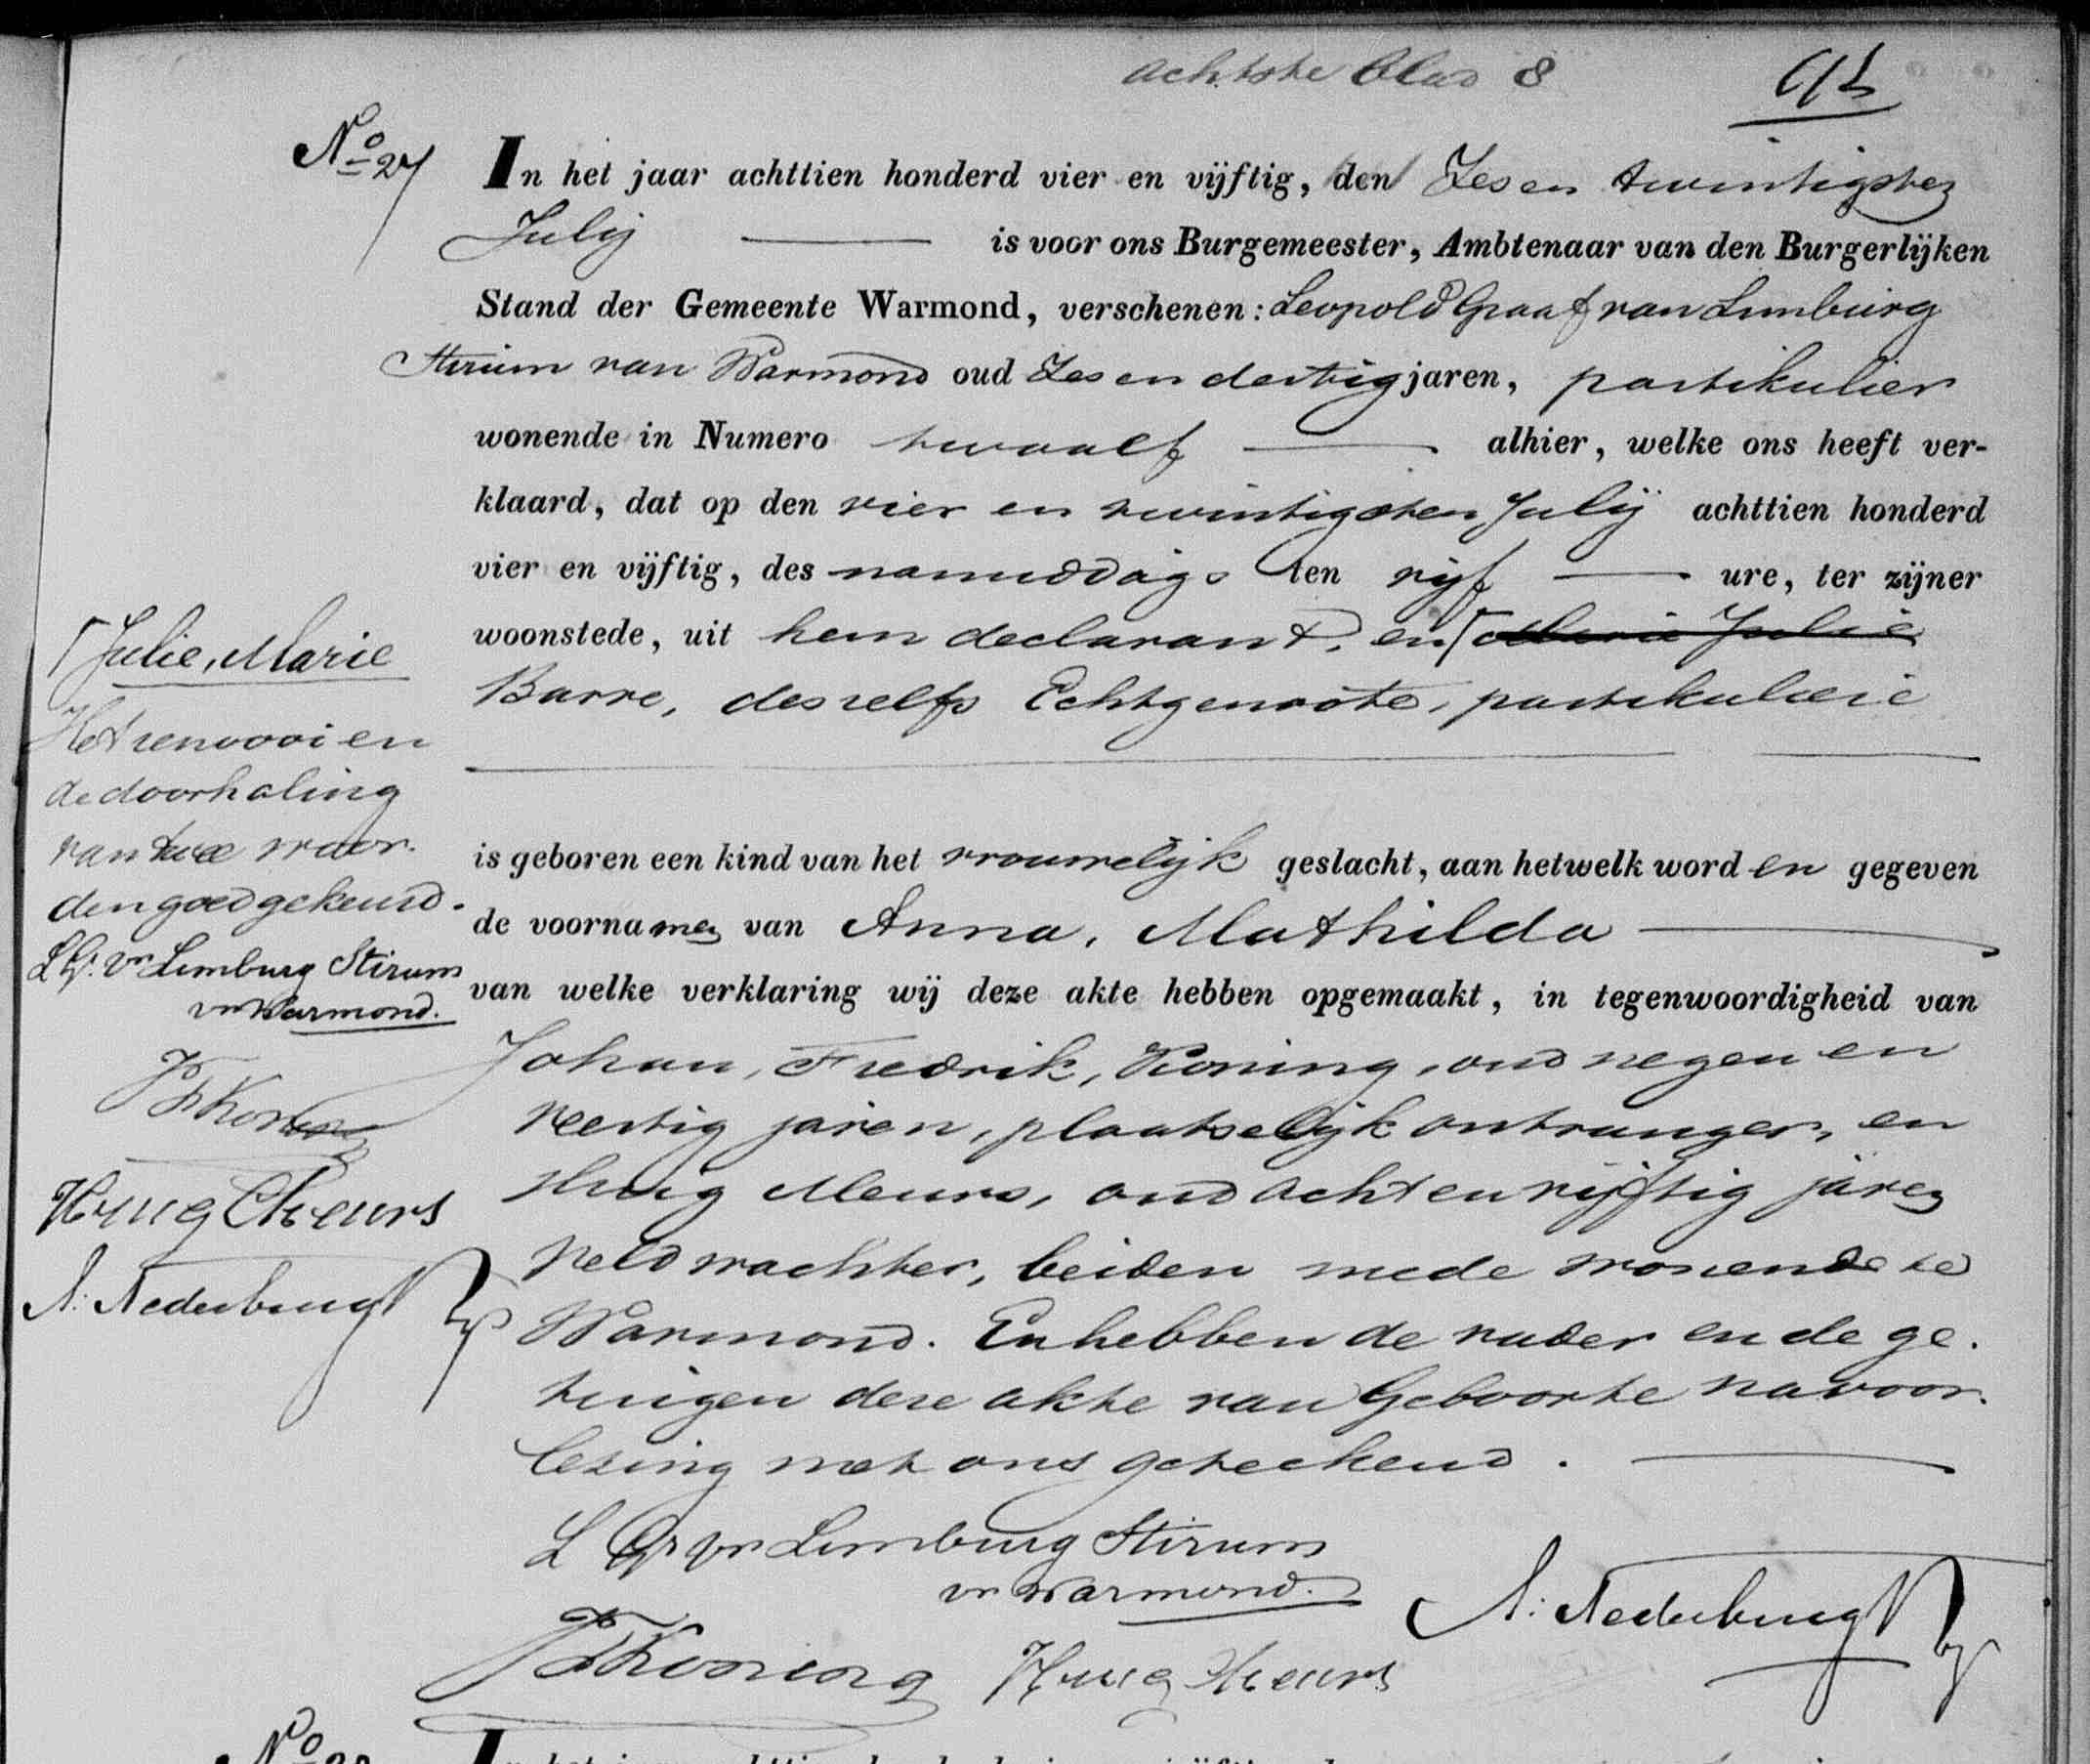 achtste blad 8
No 27
In het jaar achttien honderd vier en vijftig, den Zes en twintigsten
Julij is voor ons Burgemeester, Ambtenaar van den Burgerlijken
Stand der Gemeente Warmond, verschenen: Leopold Graaf van Limburg
Stirum van Warmond oud Zes en dertig jaren, partikulier
wonende in Numero twaalf alhier, welke ons heeft ver-
klaard, dat op den vier en twintigsten Julij achttien honderd
vier en vijftig, des namiddags ten vijf ure, ter zijner
woonstede, uit hem declarant, en Maria Julie
Barre, deszelfs Echtgenoote, partikuliere
is geboren een kind van het vrouwelijk geslacht, aan hetwelk worden gegeven
de voornamen van Anna, Mathilda
van welke verklaring wij deze akte hebben opgemaakt, in tegenwoordigheid van
Johan, Fredrik, Koning, oud negen en
veertig jaren, plaatselijk ontvanger, en
Huig Meurs, oud acht en vijftig jaren
veldwachter, beiden mede wonende te
Warmond. En hebben de vader en de ge-
tuigen deze akte van Geboorte na voor-
lezing met ons geteekend.
L Gr vn Limburg Stirum
vn Warmond.
A: Nederburgh
JFKoning Huig Meurs
Julie, Marie
Het renvooi en
de doorhaling
van twee woor-
den goedgekeurd.
L Gr. vn Limburg Stirum
vn Warmond.
JFKoning
Huig Meurs
A: Nederburgh
No